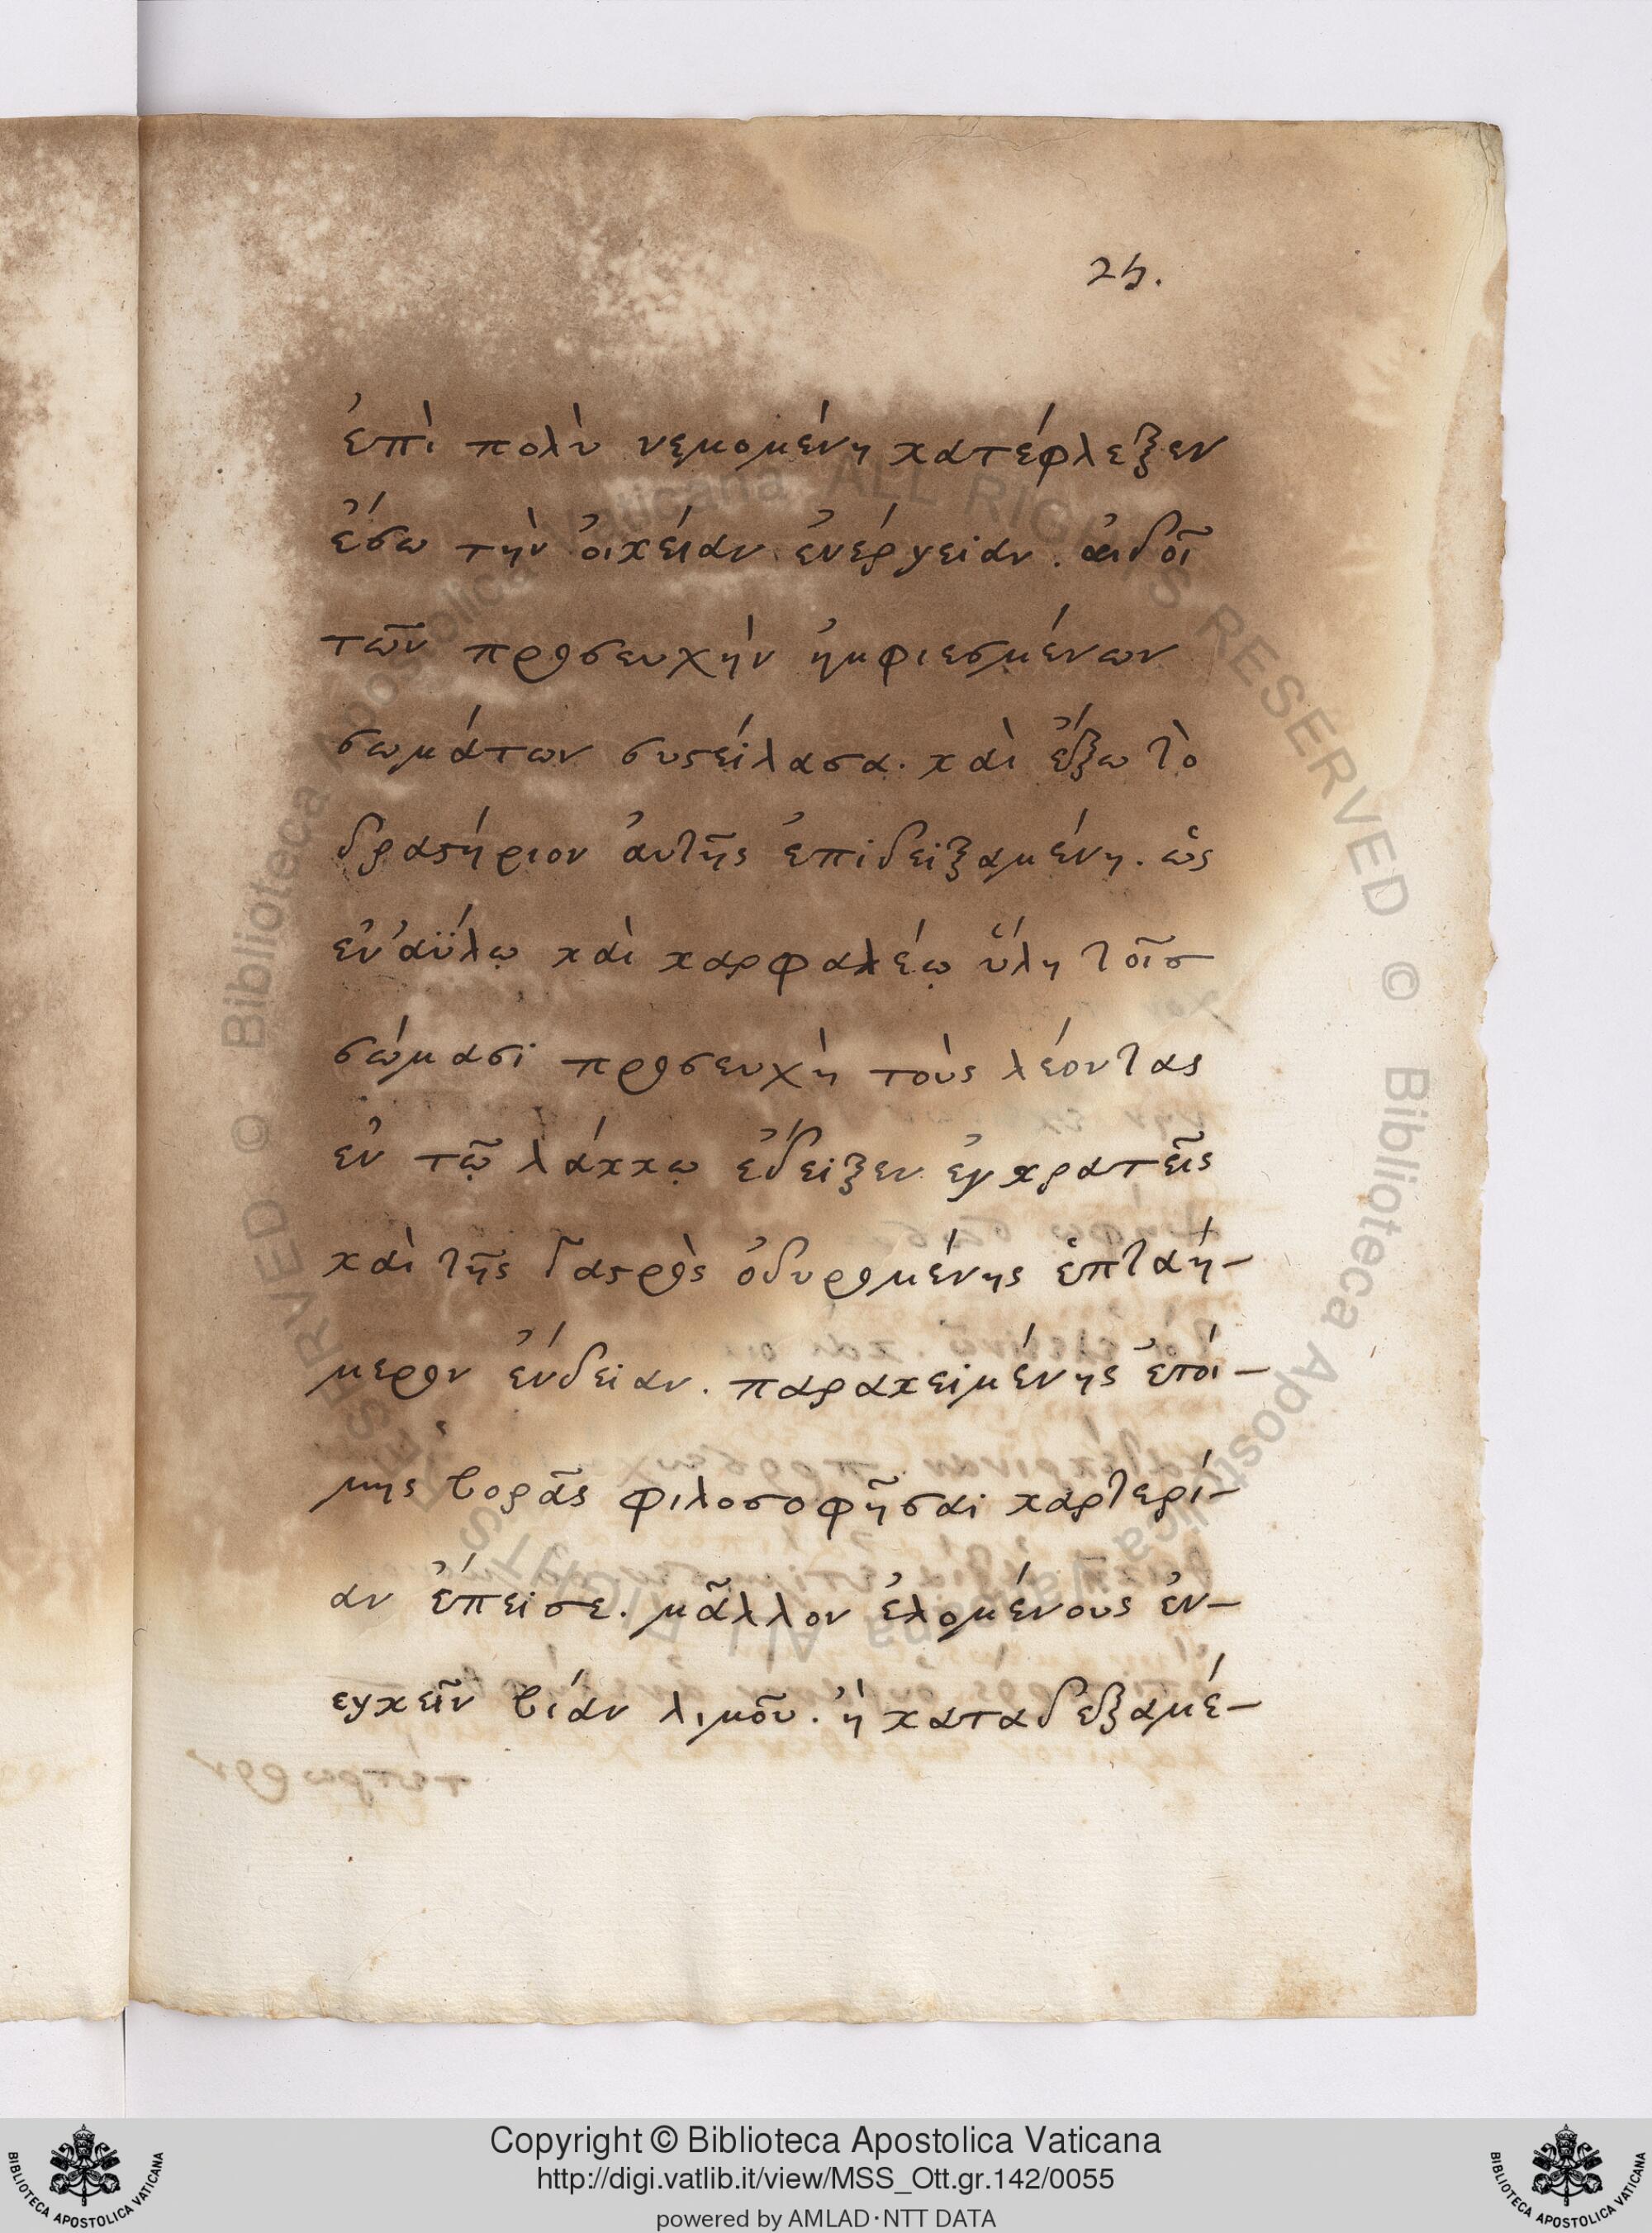 25.
ἐπὶ πολὺ νεμομένη κατέφλεξεν
ἔσω τὴν ὀικέιαν ἐνέργειαν. ἀιδοῖ
τῶν προσευχὴν ἠμφιεσμένων
σωμάτων συστείλασα. καὶ ἔξω τὸ
δραστήριον ἀυτῆς ἐπιδειξαμένη. ὡς
ἐν ἀΰλῳ καὶ καρφαλέῳ ὕλη τοῖσ
σώμασι προσευχὴ τοὺς λέοντας
ἐν τῷ λάκκῳ ἔδειξεν ἐγκρατεῖς
καὶ τῆς γαστρὸς ὀδυρομένης ἑπταή-
μερον ἔνδειαν. παρακειμένης ἑτοί-
μης βορᾶς φιλοσοφῆσαι καρτερί-
αν ἔπεισε. μᾶλλον ἑλομένους ἐν-
εγκεῖν βίαν λιμοῦ. ἢ καταδεξαμέ-
Copyright © Biblioteca Apostolica Vaticana
http://digi.vatlib.it/view/MSS_Ott.gr.142/0055
powered by AMLAD·NTT DATA
BIBLIOTECA APOSTOLICA VATICANA
BIBLIOTECA APOSTOLICA VATICANA
© Biblioteca Apostolica Vaticana ALL RIGHTS RESERVED © Biblioteca Apostolica Vaticana ALL RIGHTS RESERVED